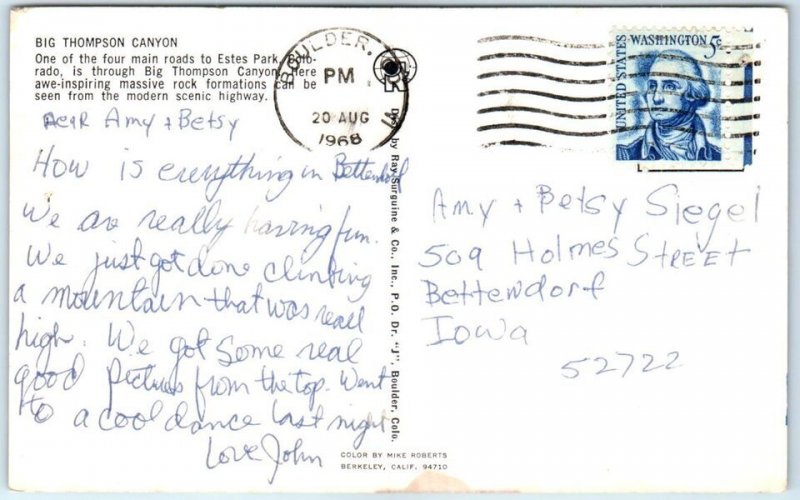 BIG THOMPSON CANYON
One of the four main roads to Estes Park, Colo-
rado, is through Big Thompson Canyon. Here
awe-inspiring massive rock formations can be
seen from the modern scenic highway.
Dear Amy + Betsy
How is everything in Bettendorf
We are really having fun.
We just got done climbing
a mountain that was reall
high. We got some real
good pictures from the top. Went
to a cool dance last night
Love John
BOULDER,
PM
20 AUG
1968
by Ray Surguine & Co., Inc., P.O. Dr. "J", Boulder, Colo.
COLOR BY MIKE ROBERTS
BERKELEY, CALIF. 94710
UNITED STATES
WASHINGTON 5c
Amy + Betsy Siegel
509 Holmes Street
Bettendorf
Iowa
52722